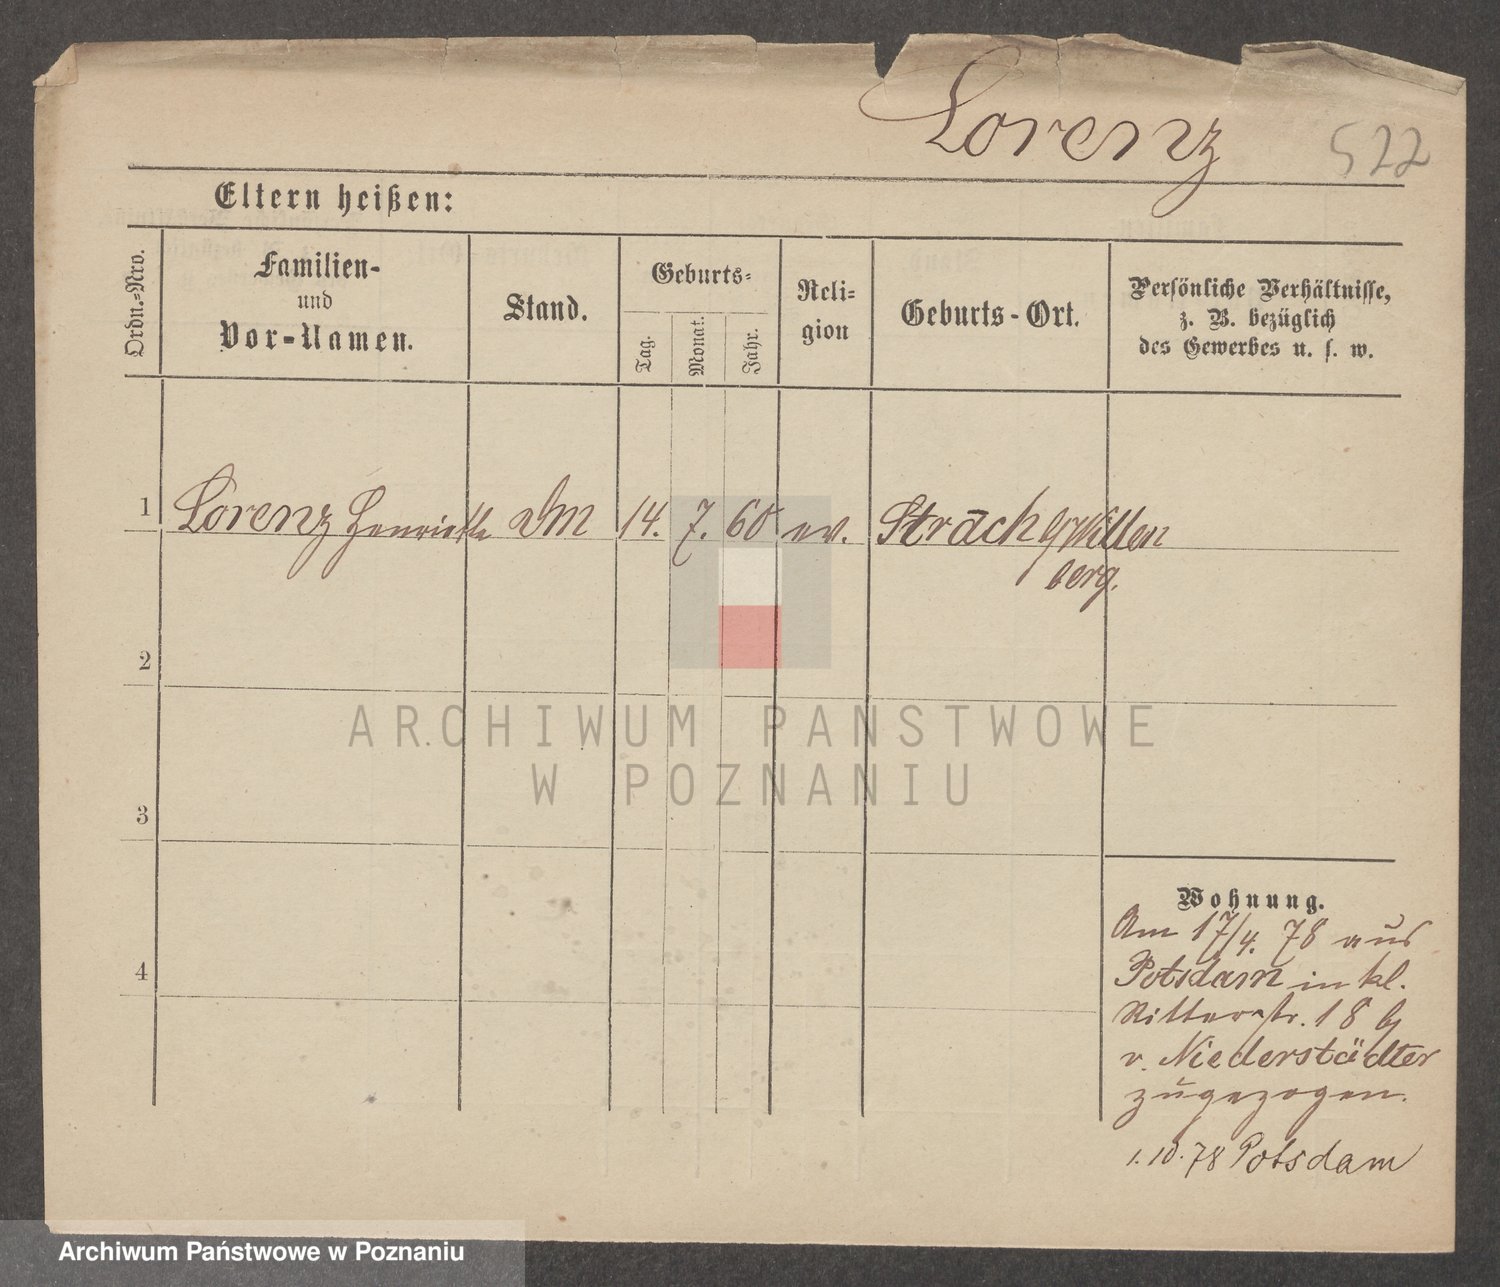 Lorenz 522
Eltern heißen:
Ordn.-Nro.
Familien-
und
Vor-Namen.
Stand.
Geburts-
Tag.
Monat.
Jahr.
Reli-
gion
Geburts-Ort.
Persönliche Verhältnisse,
z. B. bezüglich
des Gewerbes u. s. w.
1 Lorenz Henriette 14. 7. 60 ev. Strach
berg.
2
3
4
ARCHIWUM PAŃSTWOWE
W POZNANIU
Wohnung.
Am 17/4. 78 aus
Potsdam in kl.
Ritterstr. 18 b/
v. Niederstädter
zugezogen.
1. 10. 78 Potsdam
Archiwum Państwowe w Poznaniu